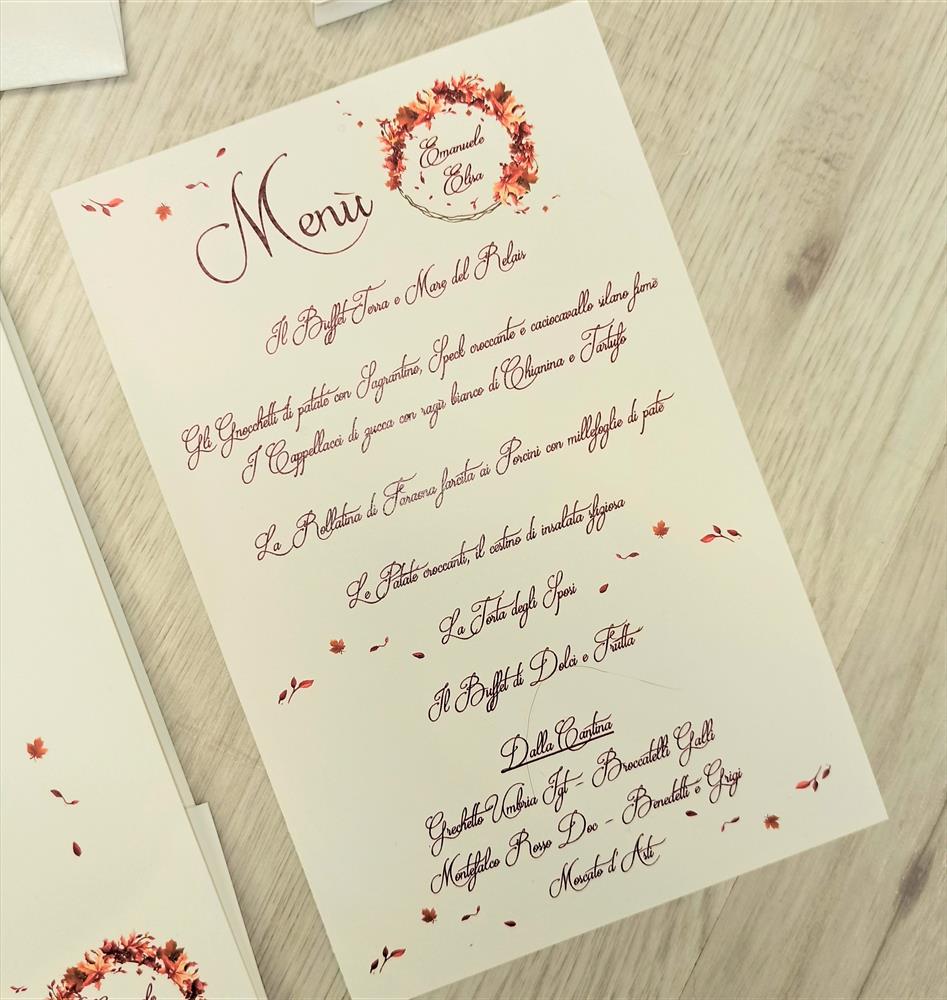 Menù
Emanuele
Elisa
Il Buffet Terra e Mare del Relais
Gli Gnocchetti di patate con Sagrantino, Speck croccante e caciocavallo silano fumè
I Cappellacci di zucca con ragù bianco di Chianina e Tartufo
La Rollatina di Faraona farcita ai Porcini con millefoglie di patè
Le Patate croccanti, il cestino di insalata sfiziosa
La Torta degli Sposi
Il Buffet di Dolci e Frutta
Dalla Cantina
Grechetto Umbria Igt - Broccatelli Galli
Montefalco Rosso Doc - Benedetti e Grigi
Moscato d'Asti
Emanuele